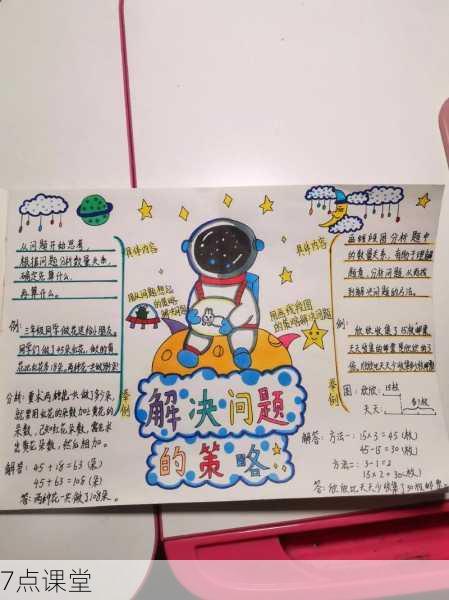 从问题开始思考,
根据问题分析数量关系,
确定先算什么,
再算什么。
具体内容
用从问题想起
的策略
解决问题
例:三年级同学做花送给小朋友。
同学们做了45朵红花,做的黄
举例
分析:要求两种花一共做了多少朵,
就要用红花的朵数加上黄花的
朵数,
出黄花朵数,然后相加。
解答:45+18=63(朵)
45+63=108(朵)
答:两种花一共做了108朵。
解决问题
的策略
具体内容
画线段图分析题中
的数量关系,有助于理解
题意,分析问题从而找
到解决问题的方法。
用画线段图
的策略解决问题
例:欣欣收集了15枚邮票,
天天收集的邮票是欣欣的3
倍,欣欣比天天少收集多少枚邮票
举例
图:欣欣: 15枚
天天:
解答:方法一:15×3=45(枚)
45-15=30(枚)
方法二:3-1=2
15×2=30(枚)
答:欣欣比天天少收集了30枚邮票
7点课堂